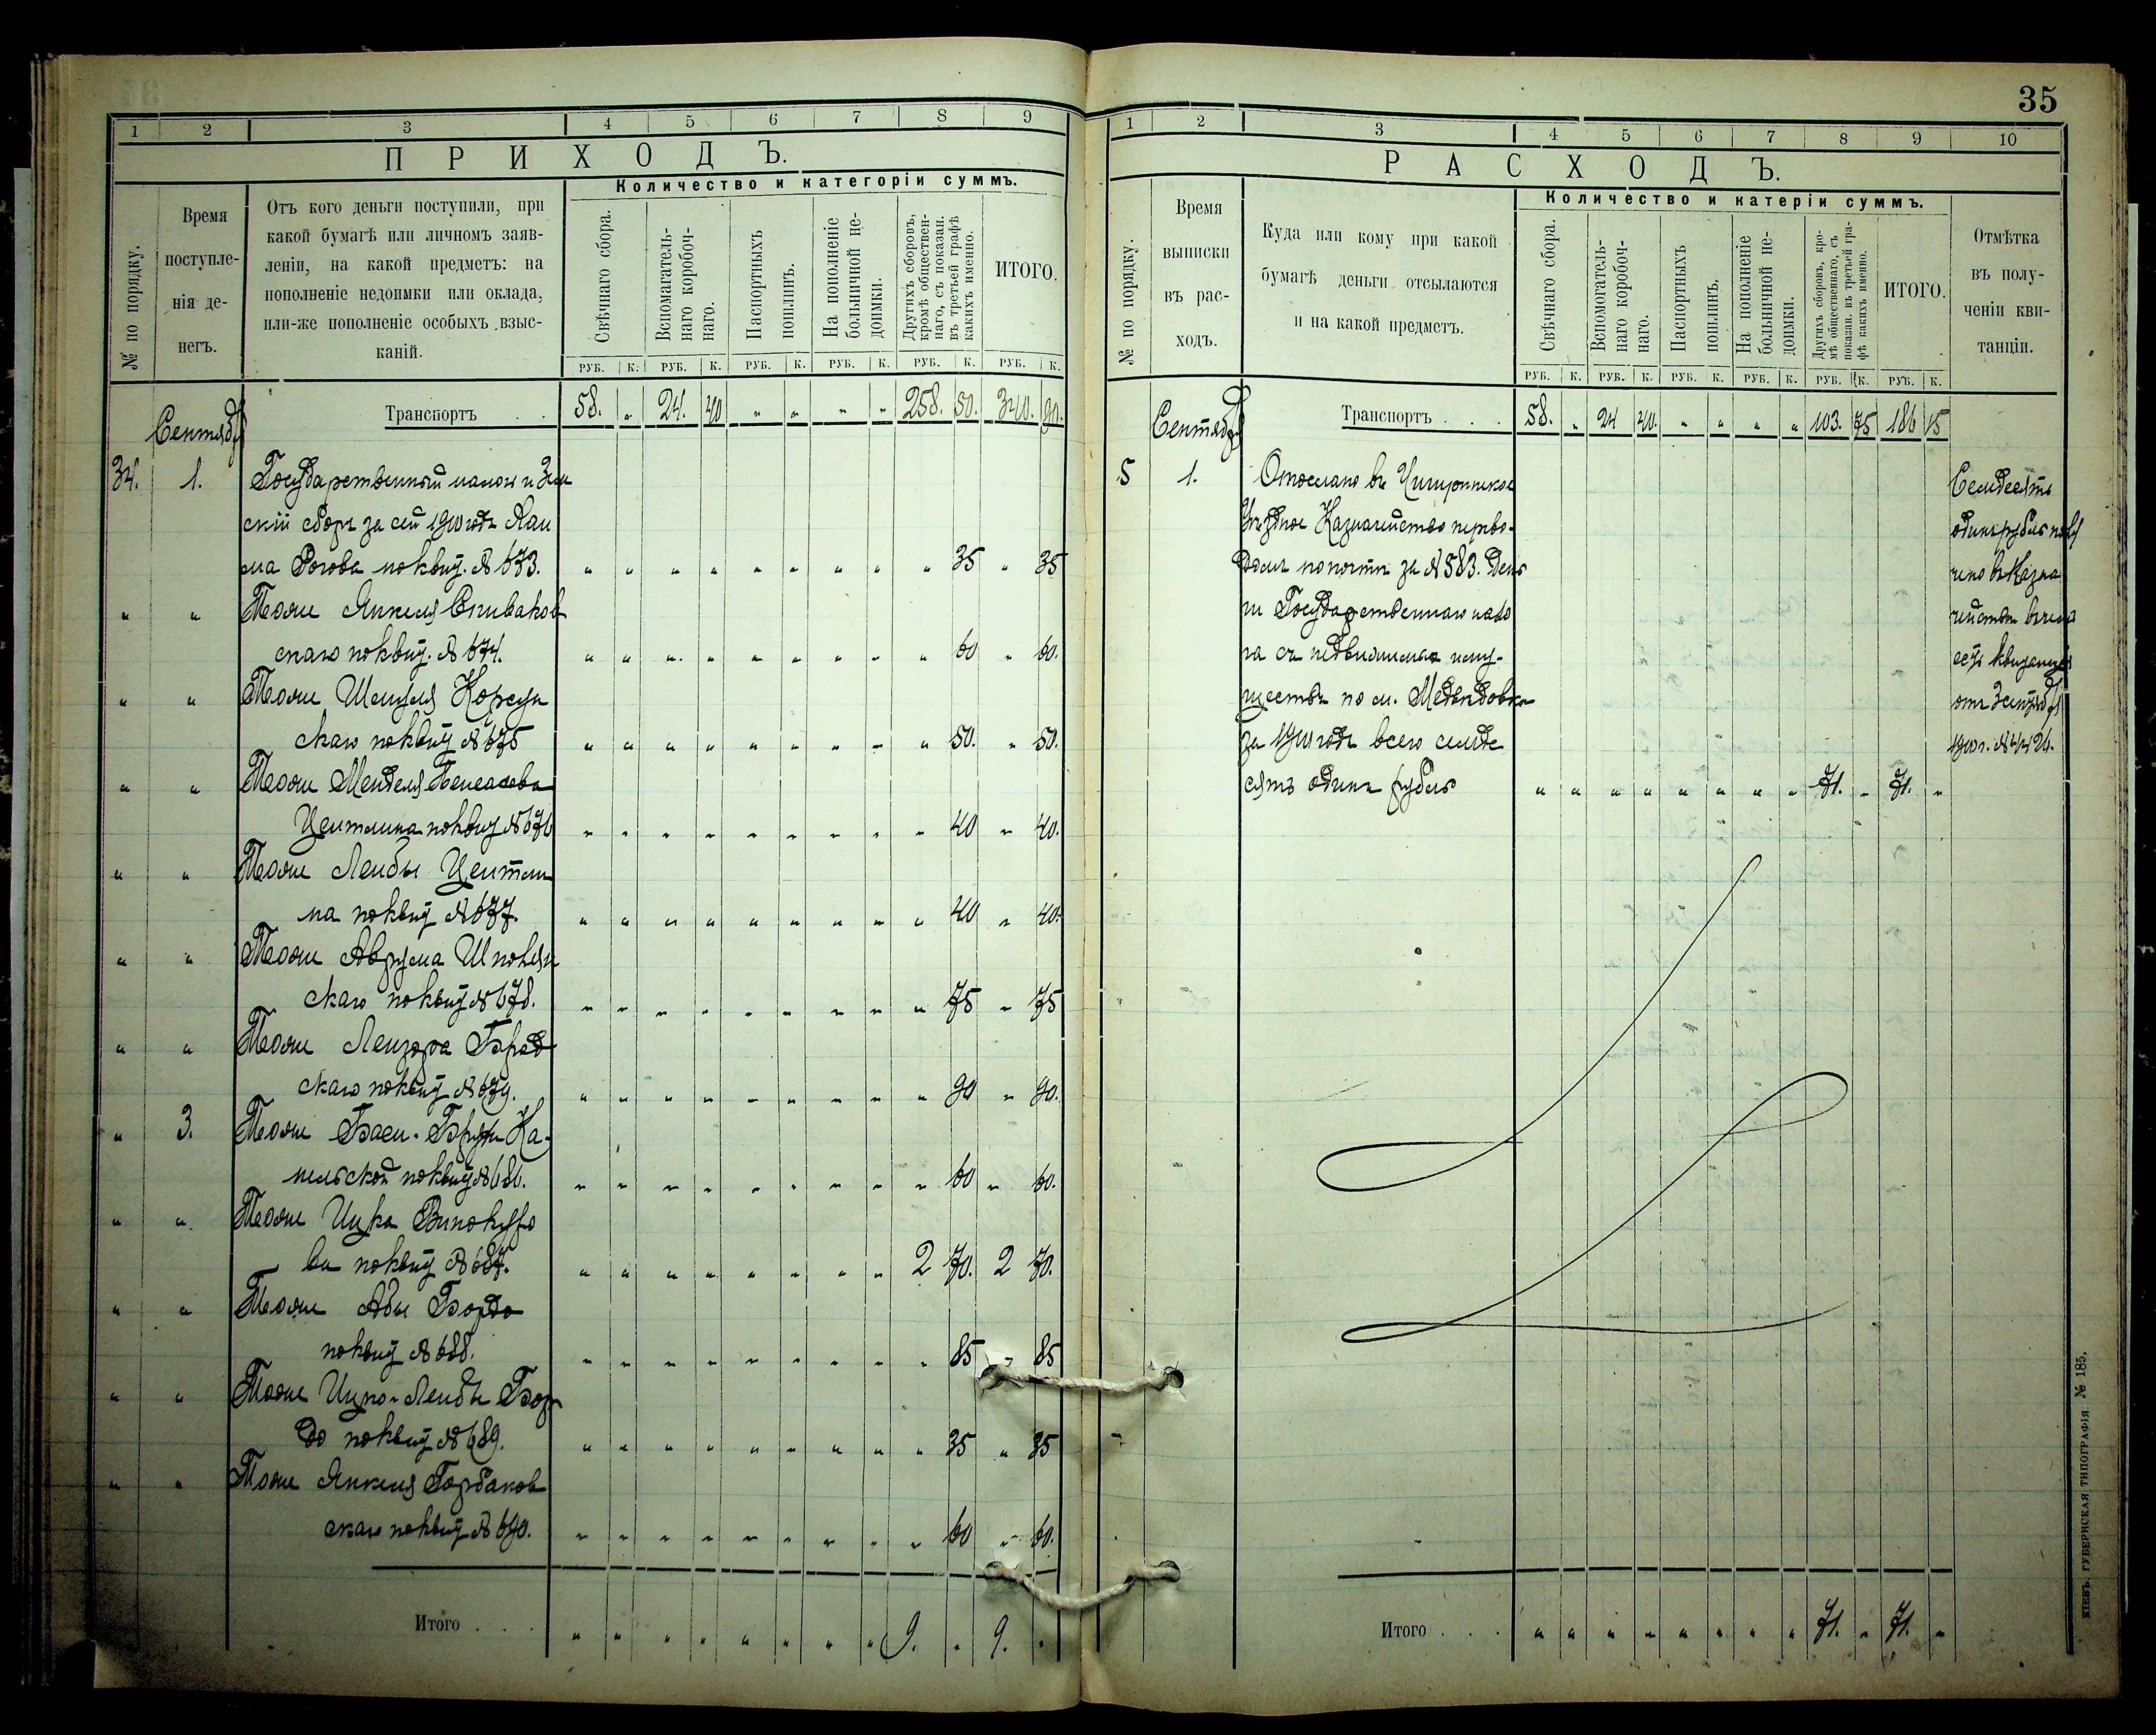 35
1 2 3 4 5 6 7 8 9
ПРИХОДЪ.
Количество и категоріи суммъ.
№ по порядку.
Время
поступле-
нія де-
негъ.
Отъ кого деньги поступили, при
какой бумагѣ или личномъ заяв-
леніи, на какой предметъ: на
пополненіе недоимки или оклада,
или-же пополненіе особыхъ взыс-
каній.
Свѣчнаго сбора.
Вспомагатель-
наго коробоч-
наго.
Паспортныхъ
пошлинъ.
На пополненіе
больничной не-
доимки.
Другихъ сборовъ,
кромѣ обществен-
наго, съ показан.
въ третьей графѣ
какихъ именно.
ИТОГО.
РУБ. К. РУБ. К. РУБ. К. РУБ. К. РУБ. К. РУБ. К.
Транспортъ . . 58. „ 24. 40 „ „ „ „ 258. 50. 340. 90.
Сентябрь
34. 1. Государственный налогъ и Зем
скій сборъ за сей 1910 годъ Хаи
ма Рогова по квит. № 673. „ „ „ „ „ „ „ „ „ 35 „ 35
„ „ Тоже Янкеля Спиваков
скаго по квит. № 674. „ „ „ „ „ „ „ „ „ 60 „ 60.
„ „ Тоже Шмуля Корсун
скаго по квит № 675 „ „ „ „ „ „ „ „ „ 50. „ 50.
„ „ Тоже Менделя
Цейтлина по квит № 676 „ „ „ „ „ „ „ „ „ 40 „ 40.
„ „ Тоже Лейбы Цейтли
на по квит № 677. „ „ „ „ „ „ „ „ „ 40 „ 40.
„ „ Тоже Аврума Шполян
скаго по квит № 678. „ „ „ „ „ „ „ „ „ 75 „ 75
„ „ Тоже Лейзора Брод
скаго по квит № 679. „ „ „ „ „ „ „ „ „ 90 „ 90.
„ 3. Тоже Баси-Брухи Ка-
невской по квит № 686. „ „ „ „ „ „ „ „ „ 60 „ 60.
„ „ Тоже Ицка Винокуро
ва по квит № 687. „ „ „ „ „ „ „ „ 2 70. 2 70.
„ „ Тоже Абы Бордо
по квит № 688. „ „ „ „ „ „ „ „ „ 85 „ 85
„ „ Тоже Ицко-Лейбы Бор
до по квит № 689. „ „ „ „ „ „ „ „ „ 35 „ 35
„ „ Тоже Янкеля Горбанов
скаго по квит № 690. „ „ „ „ „ „ „ „ „ 60 „ 60.
Итого . . . „ „ „ „ „ „ „ „ 9. „ 9. „
1 2 3 4 5 6 7 8 9 10
РАСХОДЪ.
Количество и катеріи суммъ.
№ по порядку.
Время
выписки
въ рас-
ходъ.
Куда или кому при какой
бумагѣ деньги отсылаются
и на какой предметъ.
Свѣчнаго сбора.
Вспомогатель-
наго коробоч-
наго.
Паспортныхъ
пошлинъ.
На пополненіе
больничной не-
доимки.
Другихъ сборовъ, кро-
мѣ общественнаго, съ
показан. въ третьей гра-
фѣ какихъ именно.
ИТОГО.
Отмѣтка
въ полу-
ченіи кви-
танціи.
РУБ. К. РУБ. К. РУБ. К. РУБ. К. РУБ. К. РУБ. К.
Транспортъ . . . 58. „ 24 40. „ „ „ „ 103. 75 186 15
Сентябрь
5 1. Отослано въ Чигиринское
Уѣздное Казначейство перево-
домъ по почтѣ за № 583. День
ги Государственнаго нало
га съ недвижимыхъ иму-
ществъ по м. Медвѣдовкѣ
за 1910 годъ всего семьде
сятъ одинъ рубль „ „ „ „ „ „ „ „ 71. „ 71. „
Семьдесятъ
одинъ рубль полу
чено въ Казна
чействѣ въ чемъ
есть квитанція
отъ 3 сентября
1910 г. № 4424.
Итого . . . „ „ „ „ „ „ „ „ 71. „ 71. „
КІЕВЪ. ГУБЕРНСКАЯ ТИПОГРАФІЯ. № 185.